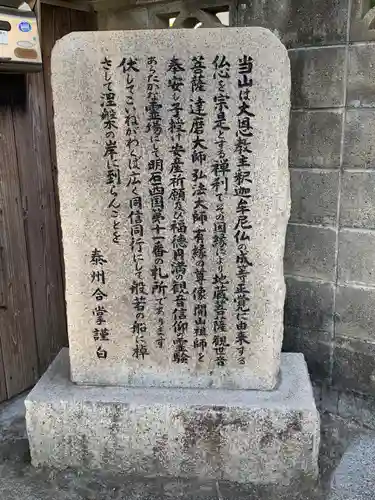 当山は大恩教主釈迦牟尼佛の成等正覚に由来する
仏心を宗是とする禅刹でその因縁により地蔵菩薩観世音
菩薩達磨大師弘法大師有縁の尊像開山祖師を
奉安し子授け安産祈願及び福徳円満の観音信仰の霊験
あらたかな霊場として明石四国第十一番の札所であります
伏してこいねがわくは広く同信同行にして般若の船に棹
さして涅槃の岸に到らんことを
泰州合掌謹白